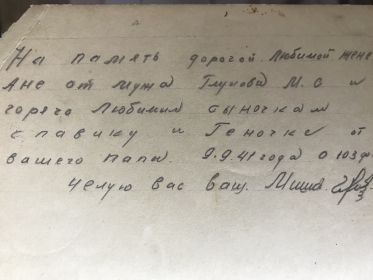 На память дорогой. Любимой жене
Ане от мужа Глунова М. С и
горячо Любимим сыночкам
славику и Геночке от
вашего папы. 9.9.41 года
целую вас ваш. Миша.